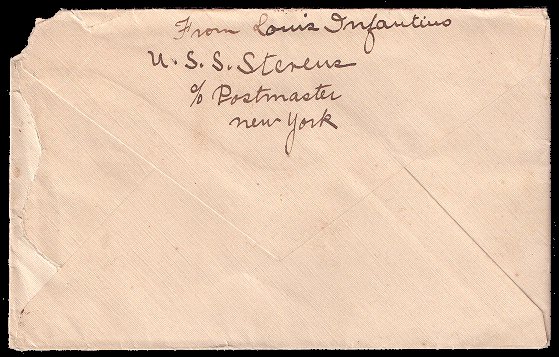 From Louis Infantino
U. S. S. Stevens
c/o Postmaster
new York